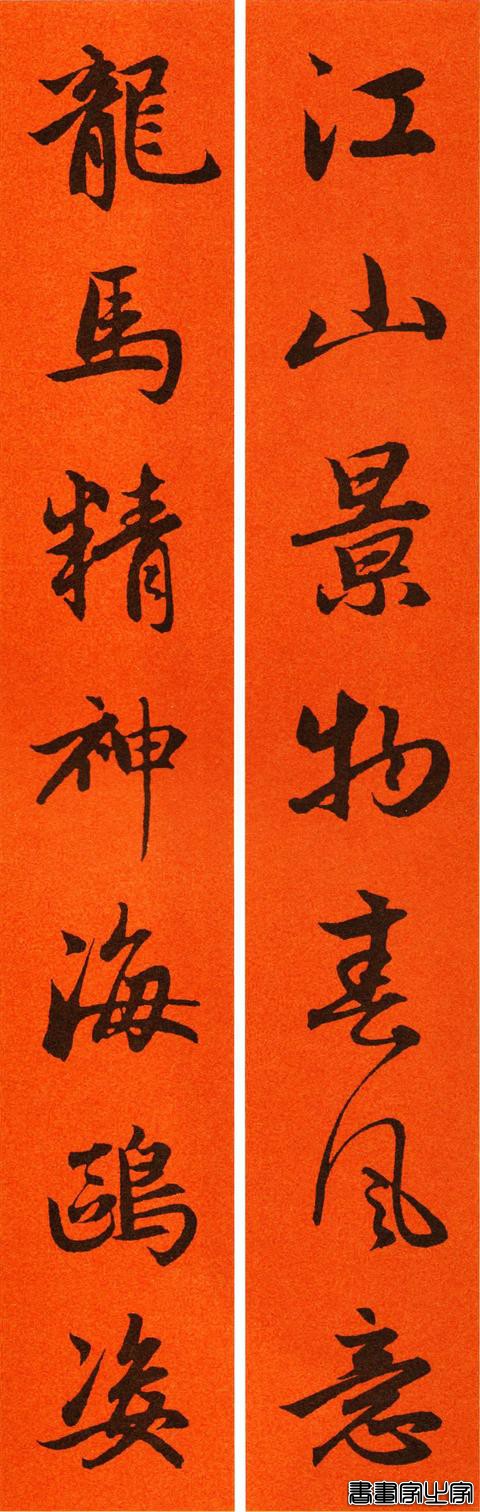 江山景物春風意
龍馬精神海鷗姿
書畫家之家